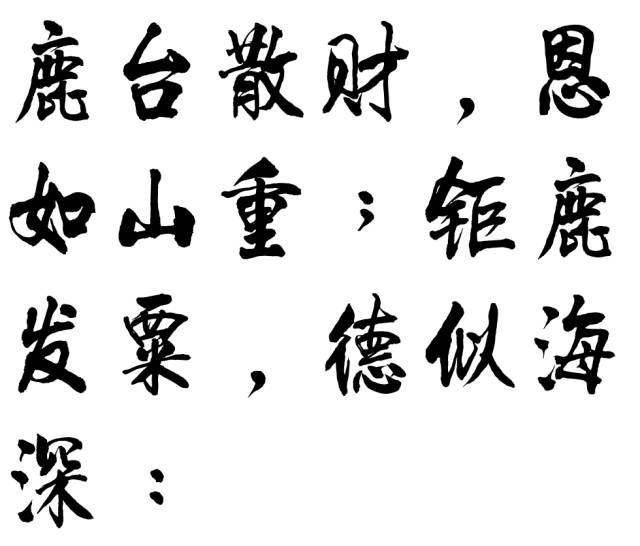 鹿台散财，恩
如山重；钜鹿
发粟，德似海
深：